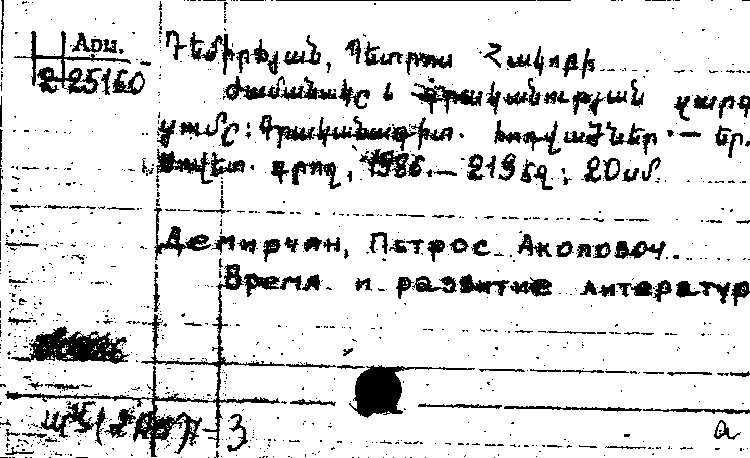 Арм.
2-25160
Դեմիրճյան, Պետրոս Հակոբի
Ժամանակը և գրականության զարգ
ացումը: Գրականագիտ. հոդվածներ. — Եր.
Սովետ. գրող, 1986. — 219 էջ; 20սմ.
Демирчян, Петрос Акопович.
Время и развитие литератур
3
а